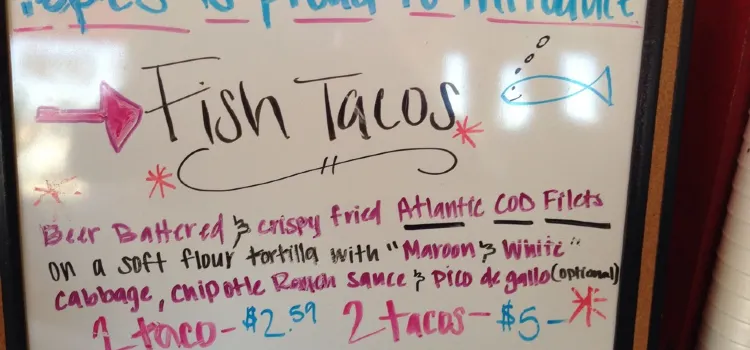 is proud to introduce
Fish Tacos
Beer Battered & crispy fried Atlantic COD Filets
on a soft flour tortilla with "Maroon & White"
cabbage, chipotle Ranch sauce & Pico de gallo (optional)
1 taco - $2.59 2 tacos - $5 -